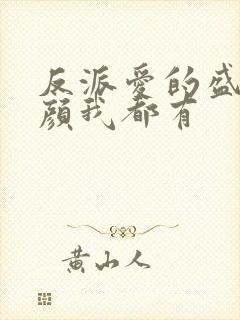 反派爱的盛
颜我都有
黄山人